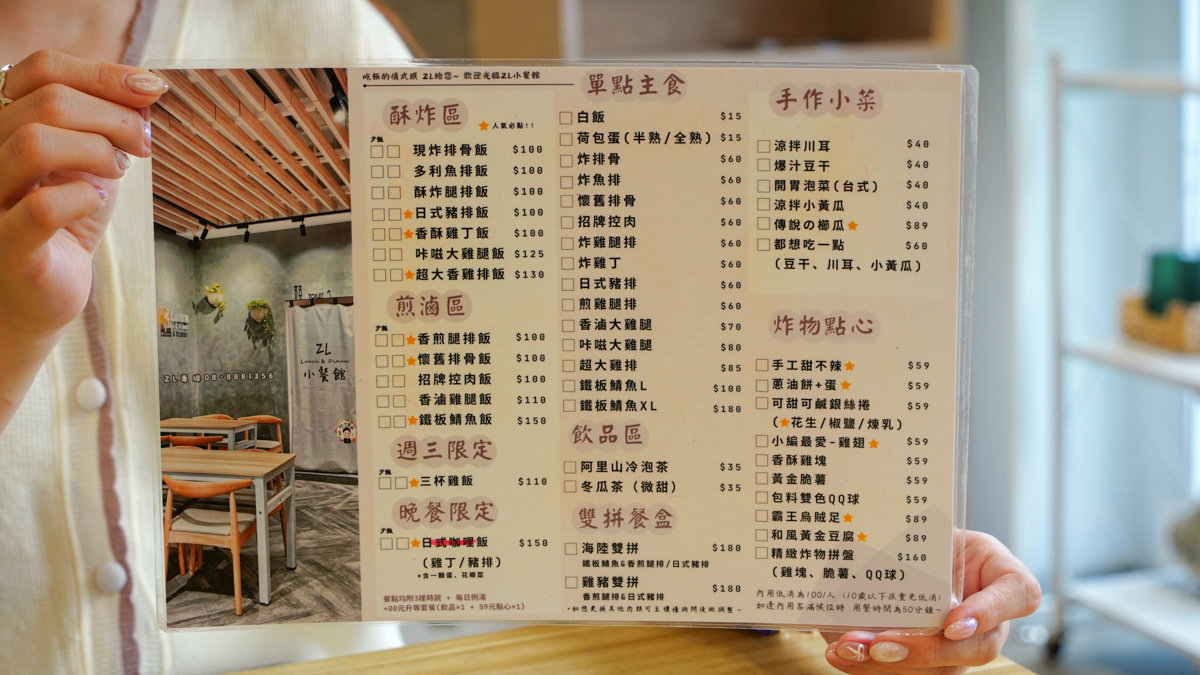 吃飯的儀式感 ZL給您~ 歡迎光臨ZL小餐館
酥炸區
★人氣必點!!
少飯
現炸排骨飯 $100
多利魚排飯 $100
酥炸腿排飯 $100
★日式豬排飯 $100
★香酥雞丁飯 $100
咔嗞大雞腿飯 $125
★超大香雞排飯 $130
煎滷區
少飯
★香煎腿排飯 $100
★懷舊排骨飯 $100
招牌控肉飯 $100
香滷雞腿飯 $110
★鐵板鯖魚飯 $150
週三限定
少飯
三杯雞飯 $110
晚餐限定
少飯
★日式咖哩飯 $150
(雞丁/豬排)
*含一顆蛋、花椰菜
餐點均附3樣時蔬 + 每日例湯
+80元升等套餐(飲品*1 + 59元點心*1)
單點主食
白飯 $15
荷包蛋(半熟/全熟) $15
炸排骨 $60
炸魚排 $60
懷舊排骨 $60
招牌控肉 $60
炸雞腿排 $60
炸雞丁 $60
日式豬排 $60
煎雞腿排 $60
香滷大雞腿 $70
咔嗞大雞腿 $80
超大雞排 $85
鐵板鯖魚L $100
鐵板鯖魚XL $180
飲品區
阿里山冷泡茶 $35
冬瓜茶（微甜） $35
雙拼餐盒
海陸雙拼 $180
鐵板鯖魚&香煎腿排/日式豬排
雞豬雙拼 $180
香煎腿排&日式豬排
*如想更換其他肉類可至櫃檯詢問後做調整~
手作小菜
涼拌川耳 $40
爆汁豆干 $40
開胃泡菜(台式) $40
涼拌小黃瓜 $40
傳說の櫛瓜★ $89
都想吃一點 $60
(豆干、川耳、小黃瓜)
炸物點心
手工甜不辣★ $59
蔥油餅+蛋★ $59
可甜可鹹銀絲捲 $59
(★花生/椒鹽/煉乳)
小編最愛-雞翅★ $59
香酥雞塊 $59
黃金脆薯 $59
包料雙色QQ球 $59
霸王烏賊足★ $89
和風黃金豆腐★ $89
精緻炸物拼盤 $160
(雞塊、脆薯、QQ球)
內用低消為100/人 (10歲以下孩童免低消)
如逢內用客滿候位時 用餐時間為50分鐘~
TOILET
ZL
Lunch & Dinner
小餐館
ZL專線08-8881356